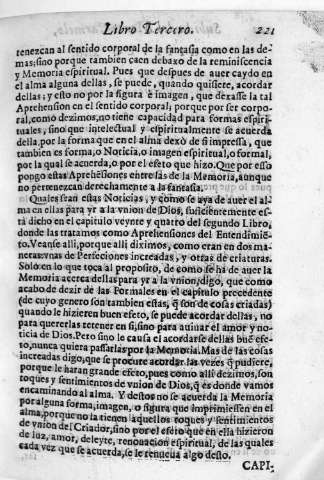 Libro Tercero. 221
tenezcan al sentido corporal de la fantasia como en las de-
mas; sino porque tambien caen debaxo de la reminiscencia
y Memoria espiritual. Pues que despues de auer caydo en
el alma alguna dellas, se puede, quando quisiere, acordar
dellas; y esto no por la figura è imagen, que dexasse la tal
Aprehension en el sentido corporal; porque por ser corpo-
ral, como dezimos, no tiene capacidad para formas espiri-
tuales, sino que intelectual y espiritualmente se acuerda
della, por la forma que en el alma dexò de si impressa, que
tambien es forma, o Noticia, o imagen espiritual, o formal,
por la qual se acuerda, o por el efeto que hizo. Que por esso
pongo estas Aprehẽsiones entre las de la Memoria, aunque
no pertenezcan derechamente a la fantasia.
Quales sean estas Noticias, y como se aya de auer el al-
ma en ellas para yr a la vnion de Dios, suficientemente es-
tà dicho en el capitulo veynte y quatro del segundo Libro,
donde las tratamos como Aprehensiones del Entendimiẽ-
to. Veanse alli, porque alli diximos, como eran en dos ma-
neras: vnas de Perfeciones increadas, y otras de criaturas.
Solo en lo que toca al proposito, de como se hà de auer la
Memoria acerca dellas para yr a la vnion, digo, que como
acabo de dezir de las Formales en el capitulo precedente
(de cuyo genero son tambien estas, q̃ son de cosas criadas)
quando le hizieren buen efeto, se puede acordar dellas, no
para quererlas retener en si, sino para auiuar el amor y no-
ticia de Dios. Pero sino le causa el acordarse dellas buẽ efe-
to, nunca quiera passarlas por la Memoria. Mas de las cosas
increadas digo, que se procure acordar las vezes q̃ pudiere,
porque le haràn grande efeto, pues como alli dezimos, son
toques y sentimientos de vnion de Dios, q̃ es donde vamos
encaminando al alma. Y destos no se acuerda la Memoria
por alguna forma, imagen, o figura que imprimiessen en el
alma, porque no la tienen aquellos toques y sentimientos
de vnion del Criador, sino por el efeto que en ella hizieron
de luz, amor, deleyte, renouacion espiritual, de las quales
cada vez que se acuerda, se le renueua algo desto.
CAPI-